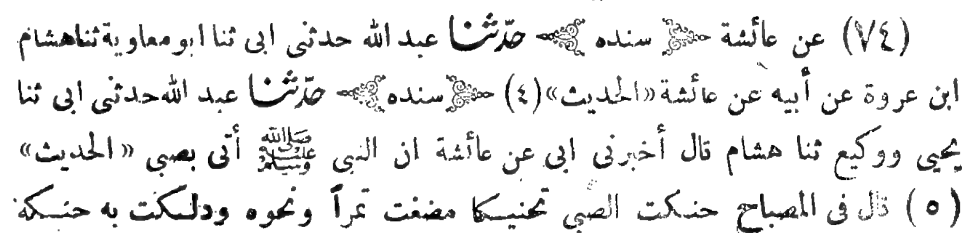 (٧٤) عن عائشة سنده حدّثنا عبد الله حدثني ابى ثنا ابو معاوية ثنا هشام
ابن عروة عن أبيه عن عائشة «الحديث» (٤) سنده حدّثنا عبد الله حدثني ابى ثنا
يحيى ووكيع ثنا هشام قال أخبرنى ابى عن عائشة ان النبى ﷺ أتى بصبى «الحديث»
(٥) قال فى المصباح حنكت الصبى تحنيكا مضغت تمراً ونحوه ودلكت به حنكه